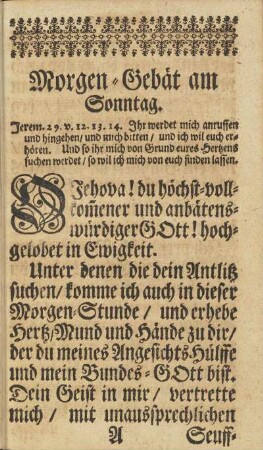 Morgen-Gebät am
Sonntag.
Jerem. 29. v. 12. 13. 14. Ihr werdet mich anruffen
und hingehen/ und mich bitten/ und ich wil euch er-
hören. Und so ihr mich von Grund eures Hertzens
suchen werdet/ so wil ich mich von euch finden lassen.
O Jehova! du höchst-voll-
kom̃ener und anbätens-
würdiger GOtt! hoch-
gelobet in Ewigkeit.
Unter denen die dein Antlitz
suchen/ komme ich auch in dieser
Morgen-Stunde/ und erhebe
Hertz/Mund und Hände zu dir/
der du meines Angesichts Hülffe
und mein Bundes-GOtt bist.
Dein Geist in mir/ vertrette
mich/ mit unaussprechlichen
A Seuff-